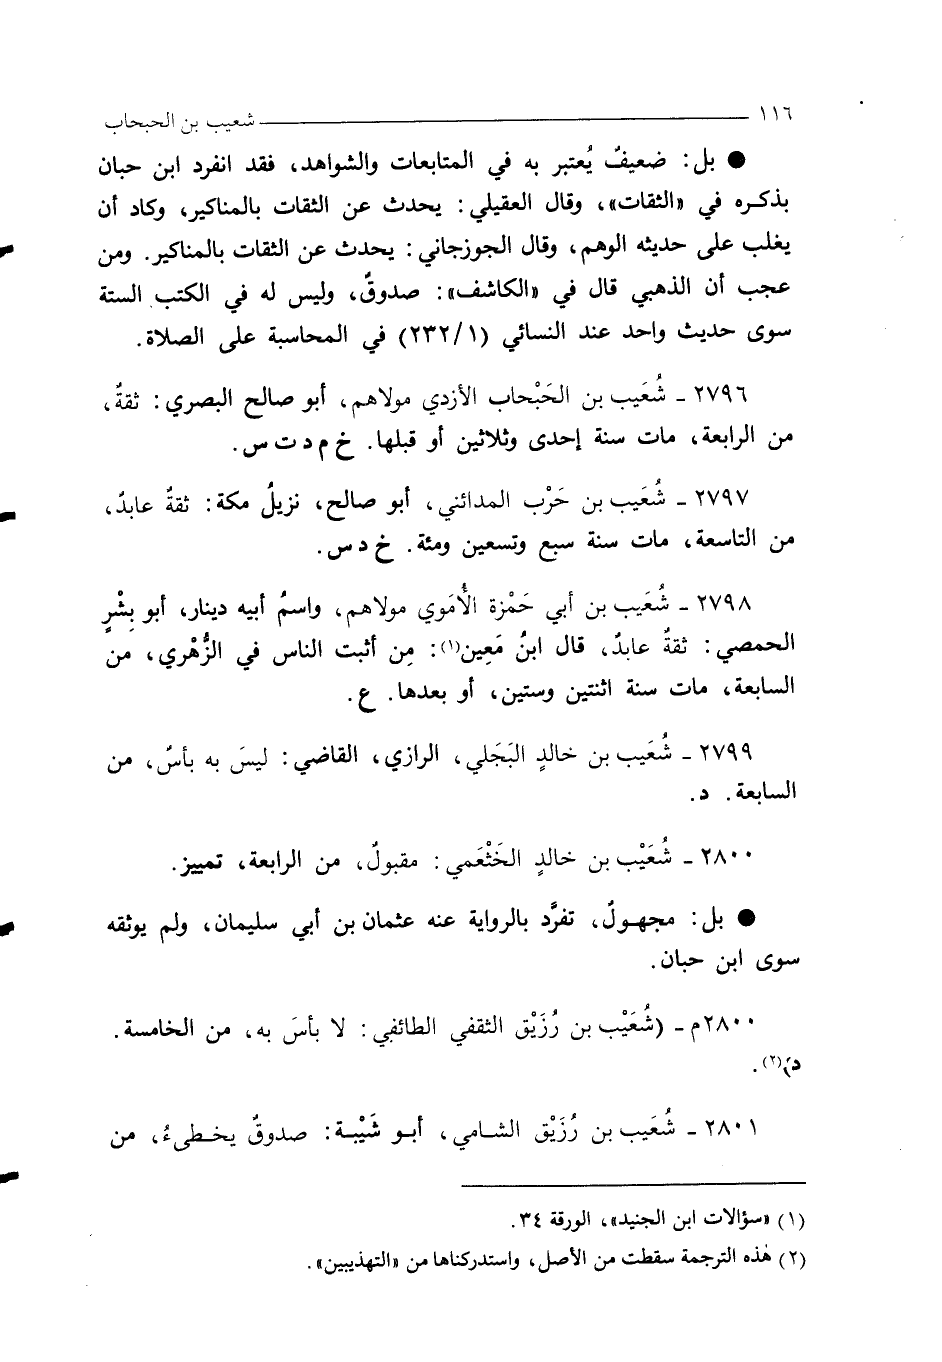 ١١٦ شعيب بن الحبحاب
● بل: ضعيفٌ يُعتبر به في المتابعات والشواهد، فقد انفرد ابن حبان
بذكره في «الثقات»، وقال العقيلي: يحدث عن الثقات بالمناكير، وكاد أن
يغلب على حديثه الوهم، وقال الجوزجاني: يحدث عن الثقات بالمناكير. ومن
عجب أن الذهبي قال في «الكاشف»: صدوقٌ، وليس له في الكتب الستة
سوى حديث واحد عند النسائي (٢٣٢/١) في المحاسبة على الصلاة.
٢٧٩٦ - شُعَيب بن الحَبْحاب الأزدي مولاهم، أبو صالح البصري: ثقةٌ،
من الرابعة، مات سنة إحدى وثلاثين أو قبلها. خ م د ت س.
٢٧٩٧ - شُعَيب بن حَرْب المدائني، أبو صالح، نزيلُ مكة: ثقةٌ عابدٌ،
من التاسعة، مات سنة سبع وتسعين ومئة. خ د س.
٢٧٩٨ - شُعَيب بن أبي حَمْزة الأُمَوي مولاهم، واسمُ أبيه دينار، أبو بِشْرٍ
الحمصي: ثقةٌ عابدٌ، قال ابنُ مَعِين(١): مِن أثبت الناس في الزُّهْري، من
السابعة، مات سنة اثنتين وستين، أو بعدها. ع.
٢٧٩٩ - شُعَيب بن خالدٍ البَجَلي، الرازي، القاضي: ليسَ به بأسٌ، من
السابعة. د.
٢٨٠٠ - شُعَيْب بن خالدٍ الخَثْعَمي: مقبولٌ، من الرابعة، تمييز.
● بل: مجهولٌ، تفرَّد بالرواية عنه عثمان بن أبي سليمان، ولم يوثقه
سوى ابن حبان.
٢٨٠٠م - (شُعَيْب بن رُزَيْق الثقفي الطائفي: لا بأسَ به، من الخامسة.
د)(٢).
٢٨٠١ - شُعَيب بن رُزَيْق الشامي، أبو شَيْبة: صدوقٌ يخطىءُ، من
(١) «سؤالات ابن الجنيد»، الورقة ٣٤.
(٢) هٰذه الترجمة سقطت من الأصل، واستدركناها من «التهذيبين».